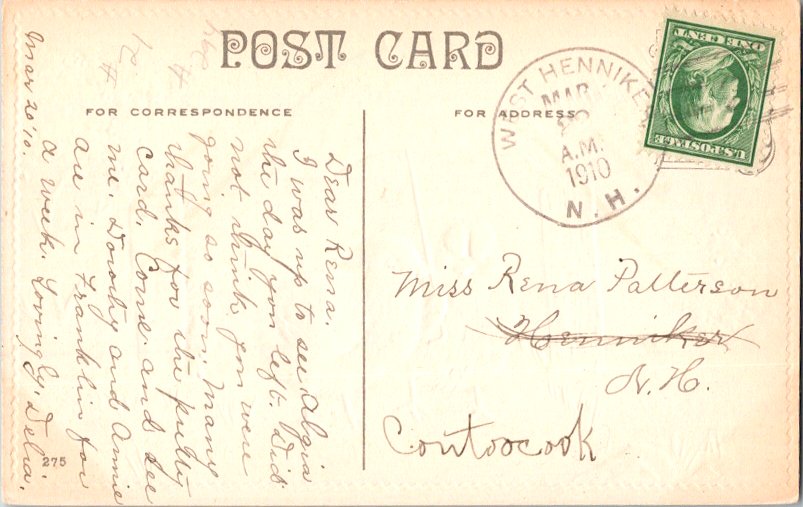 POST CARD
FOR CORRESPONDENCE
FOR ADDRESS
Mar 20 '10.
Dear Rena.
I was up to see Algia
the day you left. Did
not think you were
going so soon. Many
thanks for the pretty
card. Come and see
me. Dorothy and Annie
are in Franklin for
a week. Lovingly, Delia.
275
WEST HENNIKER
MAR
A.M.
1910
N. H.
U.S. POSTAGE
ONE CENT
Miss Rena Patterson
Henniker
N. H.
Contoocook